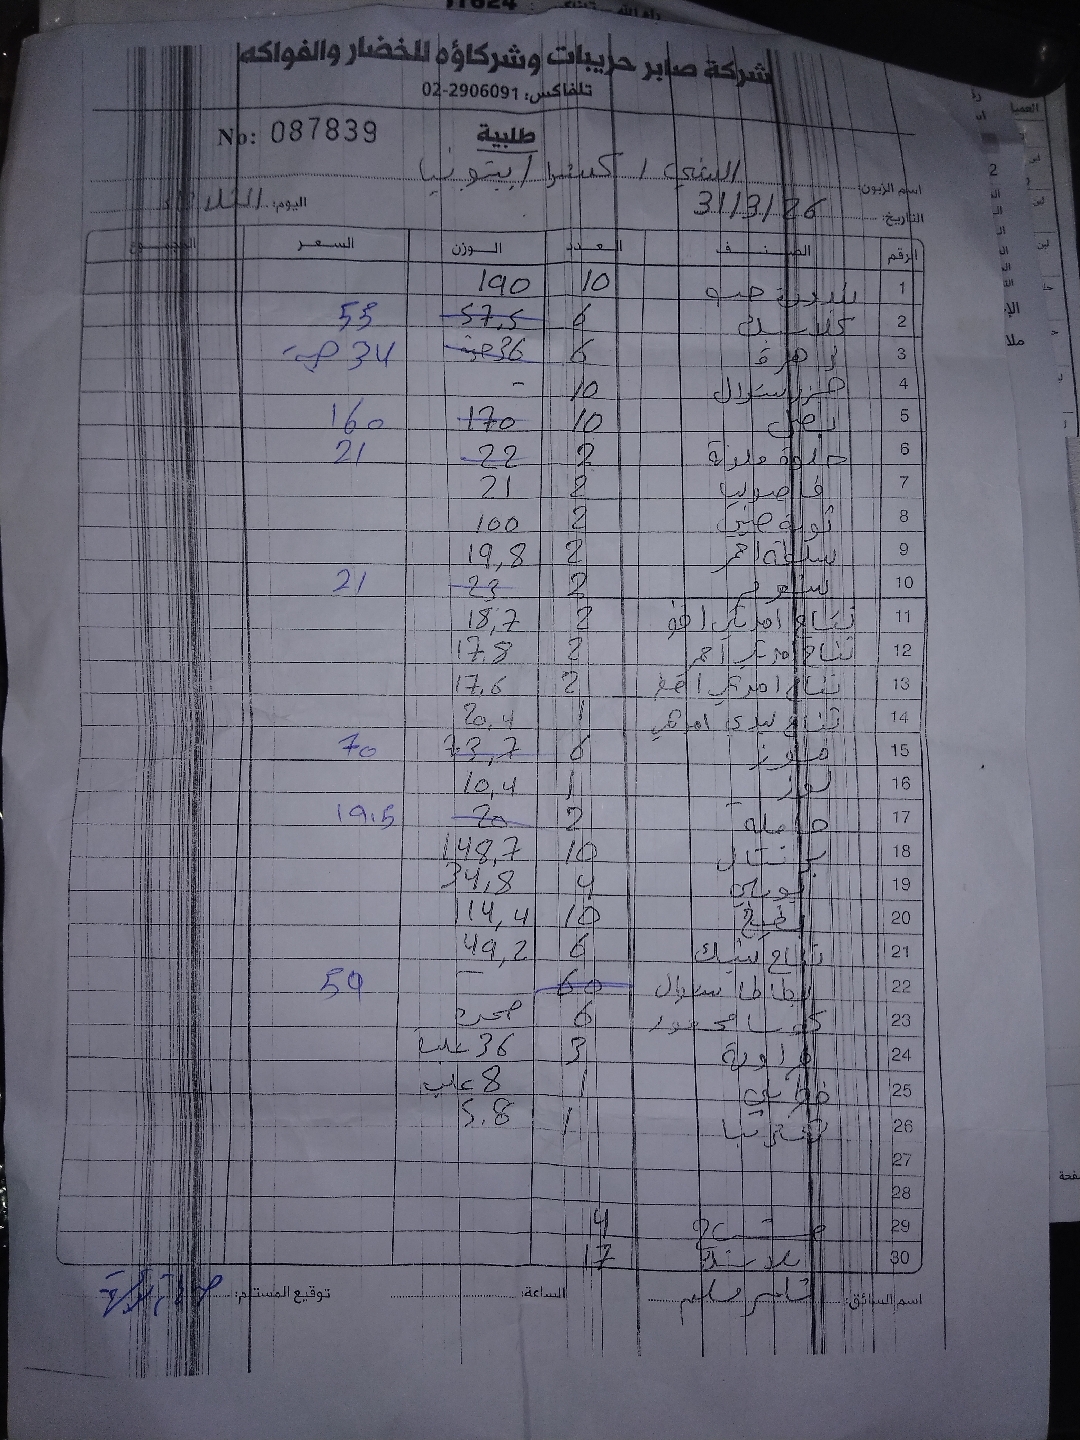 شركة صابر حريبات وشركاؤه للخضار والفواكه
تلفاكس: 02-2906091
No: 087839
طلبية
اسم الزبون: السني / كسترا / بيتونيا
التاريخ: 31/3/26 اليوم: الثلاثاء
الرقم الصنف العدد الوزن السعر المجموع
1 بندورة حبه 10 190
2 6 57,5 53
3 زهرة 6 36 34
4 جزر شوال 10 -
5 بصل 10 170 160
6 حلوة ملونة 2 22 21
7 فاصوليا 2 21
8 ثومة صيني 2 100
9 احمر 2 19,8
10 2 23 21
11 تفاح امريكي 2 18,7
12 تفاح امريكي احمر 2 17.8
13 تفاح امريكي 2 17.6
14 تفاح ليدي امريكي 1 20,4
15 موز 6 73,7 70
16 لوز 1 10,4
17 2 20 19.5
18 برتقال 10 148,7
19 بوملي 4 34,8
20 بطيخ 10 114,4
21 تفاح 6 49,2
22 بطاطا شوال 60 - 59
23 كوسا 6
24 فراولة 3 36 علبة
25 1 8 علب
26 1 5.8
27
28
29 4
30 بلاستك 17
اسم السائق: الساعة: توقيع المستلم: